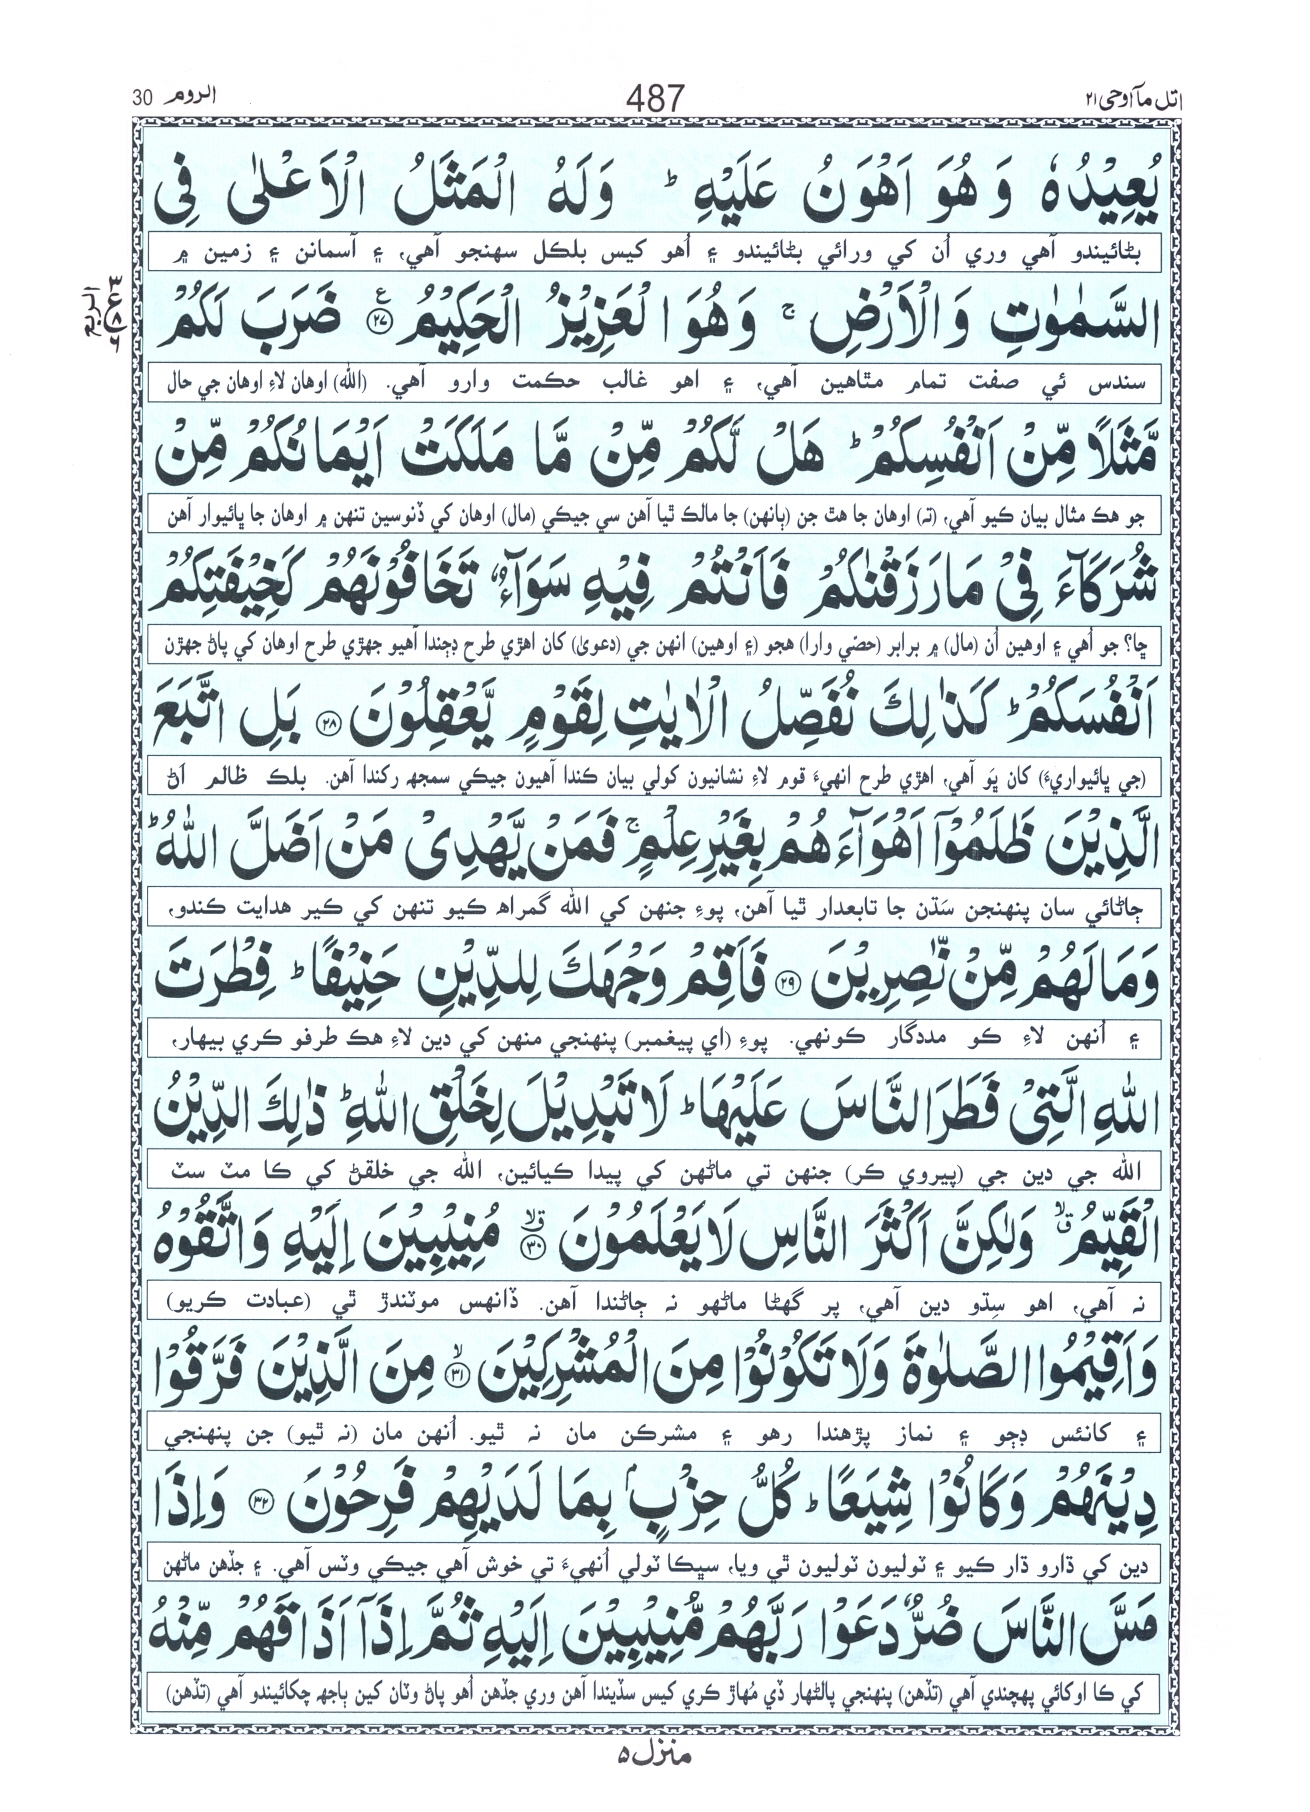 اتل ما اوحی ۲۱
487
الروم 30
يُعِيْدُهٗ وَ هُوَ اَهْوَنُ عَلَيْهِ ؕ وَلَهُ الْمَثَلُ الْاَعْلٰى فِى
بڻائيندو آهي وري اُن کي ورائي بڻائيندو ۽ اُهو کيس بلڪل سهنجو آهي، ۽ آسمانن ۽ زمين ۾
السَّمٰوٰتِ وَ الْاَرْضِ ۚ وَ هُوَ الْعَزِيْزُ الْحَكِيْمُ ۧ ۲۷ ضَرَبَ لَكُمْ
سندس ئي صفت تمام مٿاهين آهي، ۽ اهو غالب حڪمت وارو آهي. (الله) اوهان لاءِ اوهان جي حال
مَّثَلًا مِّنْ اَنْفُسِكُمْ ؕ هَلْ لَّكُمْ مِّنْ مَّا مَلَكَتْ اَيْمَانُكُمْ مِّنْ
جو هڪ مثال بيان ڪيو آهي، (ته) اوهان جا هٿ جن (ٻانهن) جا مالڪ ٿيا آهن سي جيڪي (مال) اوهان کي ڏنوسين تنهن ۾ اوهان جا ڀائيوار آهن
شُرَكَآءَ فِيْ مَا رَزَقْنٰكُمْ فَاَنْتُمْ فِيْهِ سَوَآءٌ تَخَافُوْنَهُمْ كَخِيْفَتِكُمْ
ڇا؟ جو اُهي ۽ اوهين اُن (مال) ۾ برابر (حصي وارا) هجو (۽ اوهين) انهن جي (دعويٰ) کان اهڙي طرح ڊڄندا آهيو جهڙي طرح اوهان کي پاڻ جهڙن
اَنْفُسَكُمْ ؕ كَذٰلِكَ نُفَصِّلُ الْاٰيٰتِ لِقَوْمٍ يَّعْقِلُوْنَ ۲۸ بَلِ اتَّبَعَ
(جي ڀائيواريءَ) کان ڀَو آهي، اهڙي طرح انهيءَ قوم لاءِ نشانيون کولي بيان ڪندا آهيون جيڪي سمجھ رکندا آهن. بلڪ ظالم اڻ
الَّذِيْنَ ظَلَمُوْۤا اَهْوَآءَهُمْ بِغَيْرِ عِلْمٍ ۚ فَمَنْ يَّهْدِىْ مَنْ اَضَلَّ اللّٰهُ ؕ
ڄاڻائي سان پنهنجن سَڌن جا تابعدار ٿيا آهن، پوءِ جنهن کي الله گمراھ ڪيو تنهن کي ڪير هدايت ڪندو،
وَمَا لَهُمْ مِّنْ نّٰصِرِيْنَ ۲۹ فَاَقِمْ وَجْهَكَ لِلدِّيْنِ حَنِيْفًا ؕ فِطْرَتَ
۽ اُنهن لاءِ ڪو مددگار ڪونهي. پوءِ (اي پيغمبر) پنهنجي منهن کي دين لاءِ هڪ طرفو ڪري بيهار،
اللّٰهِ الَّتِيْ فَطَرَ النَّاسَ عَلَيْهَا ؕ لَا تَبْدِيْلَ لِخَلْقِ اللّٰهِ ؕ ذٰلِكَ الدِّيْنُ
الله جي دين جي (پيروي ڪر) جنهن تي ماڻهن کي پيدا ڪيائين، الله جي خلقڻ کي ڪا مٽ سٽ
الْقَيِّمُ ۙ وَلٰكِنَّ اَكْثَرَ النَّاسِ لَا يَعْلَمُوْنَ ۳۰ مُنِيْبِيْنَ اِلَيْهِ وَ اتَّقُوْهُ
نہ آهي، اهو سِڌو دين آهي، پر گهڻا ماڻهو نہ ڄاڻندا آهن. ڏانهس موٽندڙ ٿي (عبادت ڪريو)
وَ اَقِيْمُوا الصَّلٰوةَ وَلَا تَكُوْنُوْا مِنَ الْمُشْرِكِيْنَ ۙ ۳۱ مِنَ الَّذِيْنَ فَرَّقُوْا
۽ کانئس ڊڄو ۽ نماز پڙهندا رهو ۽ مشرڪن مان نہ ٿيو. اُنهن مان (نہ ٿيو) جن پنهنجي
دِيْنَهُمْ وَ كَانُوْا شِيَعًا ؕ كُلُّ حِزْبٍۭ بِمَا لَدَيْهِمْ فَرِحُوْنَ ۳۲ وَ اِذَا
دين کي ڌارو ڌار ڪيو ۽ ٽوليون ٽوليون ٿي ويا، سڀڪا ٽولي اُنهيءَ تي خوش آهي جيڪي وٽس آهي. ۽ جڏهن ماڻهن
مَسَّ النَّاسَ ضُرٌّ دَعَوْا رَبَّهُمْ مُّنِيْبِيْنَ اِلَيْهِ ثُمَّ اِذَاۤ اَذَاقَهُمْ مِّنْهُ
کي ڪا اوکائي پهچندي آهي (تڏهن) پنهنجي پالڻهار ڏي مُهاڙ ڪري کيس سڏيندا آهن وري جڏهن اُهو پاڻ وٽان کين ٻاجھ چکائيندو آهي (تڏهن)
منزل ۵